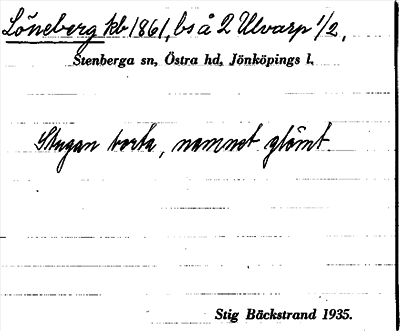 Löneberg kb 1861, bs å 2 Ulvarp 1/2,
Stenberga sn, Östra hd, Jönköpings l.
Stugan borta, namnet glömt.
Stig Bäckstrand 1935.